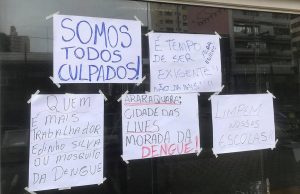 SOMOS
TODOS
CULPADOS!
É TEMPO
DE SER
EXIGENTE
QUEM
É MAIS
TRABALHADOR
EDINHO SILVA
OU MOSQUITO
DA DENGUE
ARARAQUARA:
CIDADE DAS
LIVES
MORADA DA
DENGUE!
NOSSAS
ESCOLAS!